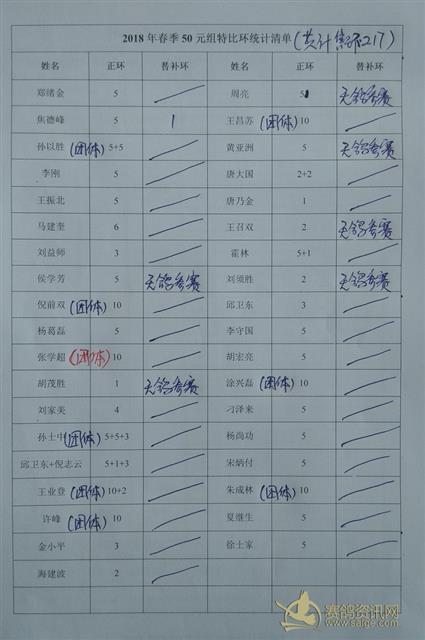 2018 年春季 50 元组特比环统计清单 (共计售环217)
姓名 正环 替补环 姓名 正环 替补环
郑绪金 5 周亮 5 无鸽参赛
焦德峰 5 1 王昌苏 (团体) 10
孙以胜 (团体) 5+5 黄亚洲 5 无鸽参赛
李刚 5 唐大国 2+2
王振北 5 唐乃金 1
马建奎 6 王召双 2 无鸽参赛
刘益师 3 霍林 5+1
侯学芳 5 无鸽参赛 刘须胜 2 无鸽参赛
倪前双 (团体) 10 邱卫东 3
杨葛磊 5 李守国 5
张学超 (团体) 10 胡宏亮 5
胡茂胜 1 无鸽参赛 涂兴磊 (团体) 10
刘家美 4 刁泽来 5
孙士中 (团体) 5+5+3 杨尚功 5
邱卫东+倪志云 5+1+3 宋炳付 5
王业登 (团体) 10+2 朱成林 (团体) 10
许峰 (团体) 10 夏继生 5
金小平 3 徐士家 5
海建波 2
赛鸽资讯网
www.saige.com